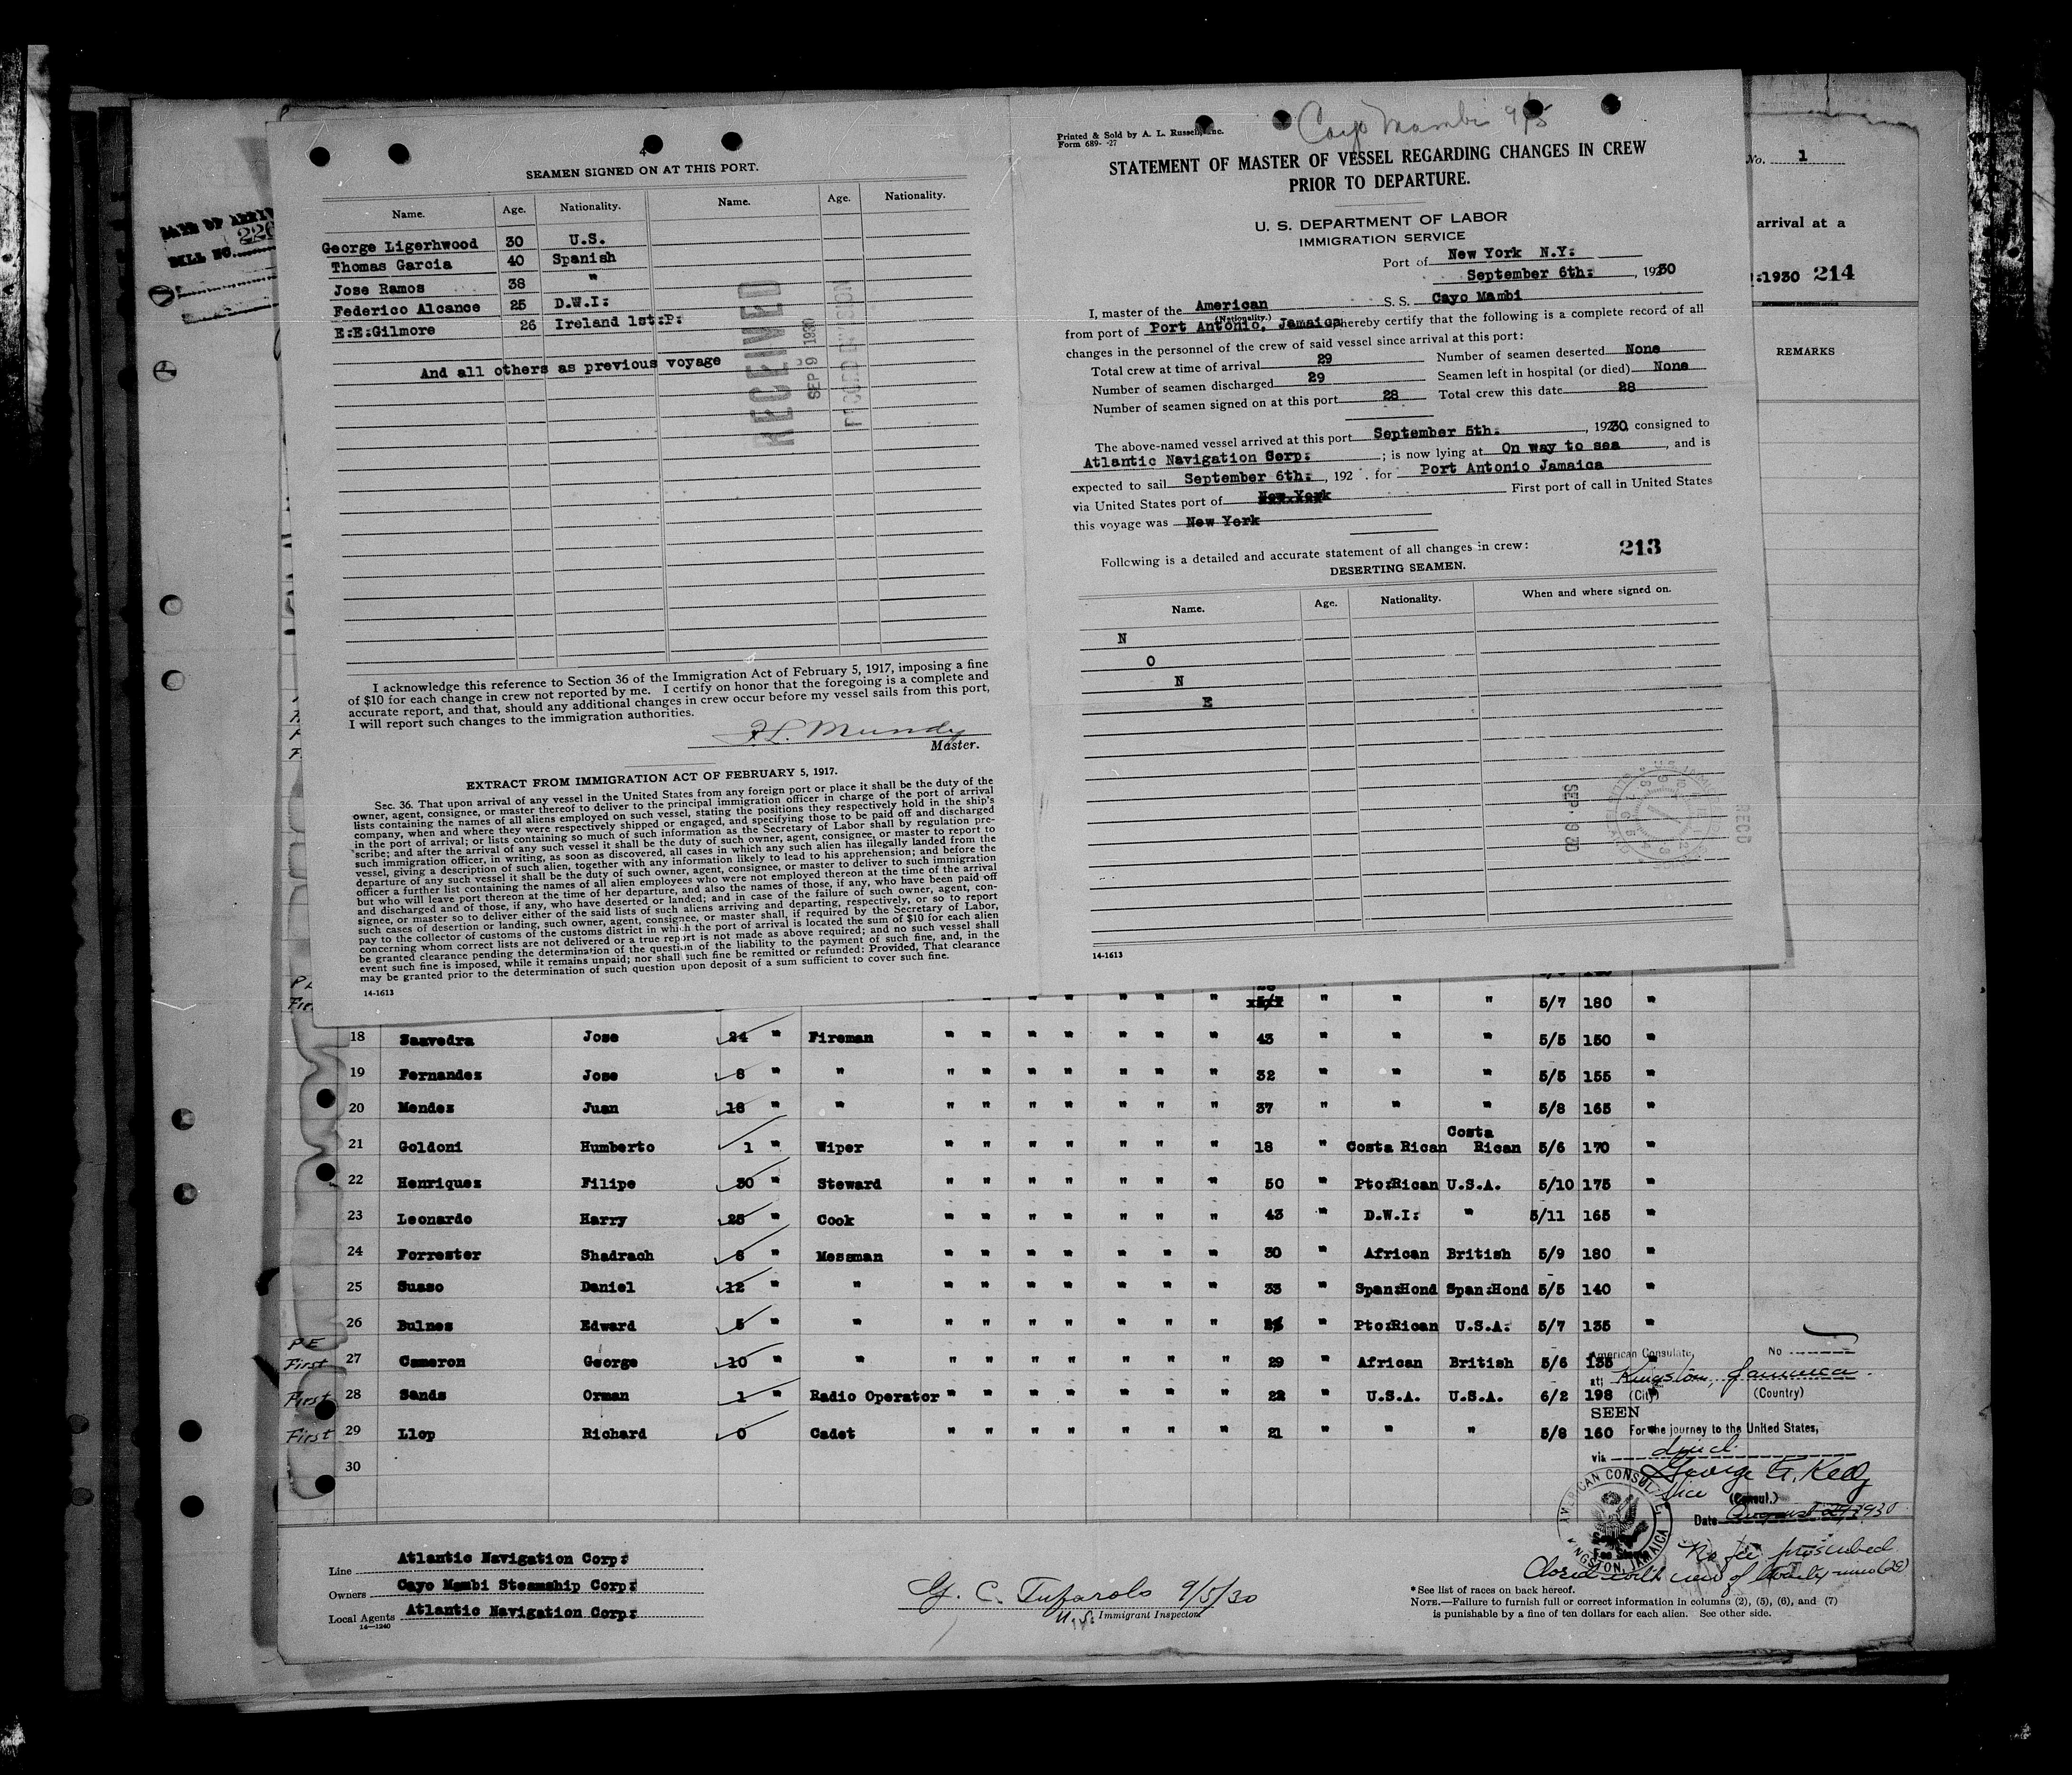 4
SEAMEN SIGNED ON AT THIS PORT.
Name. Age. Nationality. Name. Age. Nationality.
George Ligerhwood 30 U.S.
Thomas Garcia 40 Spanish
Jose Ramos 38 "
Federico Alcance 25 D.W.I:
E:E:Gilmore 26 Ireland 1st:P:
And all others as previous voyage
RECEIVED
SEP 9 1930
I acknowledge this reference to Section 36 of the Immigration Act of February 5, 1917, imposing a fine
of $10 for each change in crew not reported by me. I certify on honor that the foregoing is a complete and
accurate report, and that, should any additional changes in crew occur before my vessel sails from this port,
I will report such changes to the immigration authorities.
F.L. Mundy
Master.
EXTRACT FROM IMMIGRATION ACT OF FEBRUARY 5, 1917.
Sec. 36. That upon arrival of any vessel in the United States from any foreign port or place it shall be the duty of the
owner, agent, consignee, or master thereof to deliver to the principal immigration officer in charge of the port of arrival
lists containing the names of all aliens employed on such vessel, stating the positions they respectively hold in the ship's
company, when and where they were respectively shipped or engaged, and specifying those to be paid off and discharged
in the port of arrival; or lists containing so much of such information as the Secretary of Labor shall by regulation pre-
scribe; and after the arrival of any such vessel it shall be the duty of such owner, agent, consignee, or master to report to
such immigration officer, in writing, as soon as discovered, all cases in which any such alien has illegally landed from the
vessel, giving a description of such alien, together with any information likely to lead to his apprehension; and before the
departure of any such vessel it shall be the duty of such owner, agent, consignee, or master to deliver to such immigration
officer a further list containing the names of all alien employees who were not employed thereon at the time of the arrival
but who will leave port thereon at the time of her departure, and also the names of those, if any, who have been paid off
and discharged and of those, if any, who have deserted or landed; and in case of the failure of such owner, agent, con-
signee, or master so to deliver either of the said lists of such aliens arriving and departing, respectively, or so to report
such cases of desertion or landing, such owner, agent, consignee, or master shall, if required by the Secretary of Labor,
pay to the collector of customs of the customs district in which the port of arrival is located the sum of $10 for each alien
concerning whom correct lists are not delivered or a true report is not made as above required; and no such vessel shall
be granted clearance pending the determination of the question of the liability to the payment of such fine, and, in the
event such fine is imposed, while it remains unpaid; nor shall such fine be remitted or refunded: Provided, That clearance
may be granted prior to the determination of such question upon deposit of a sum sufficient to cover such fine.
14-1613
Printed & Sold by A. L. Russell, Inc.
Form 689- -27
Cayo Mambi 9/5
STATEMENT OF MASTER OF VESSEL REGARDING CHANGES IN CREW
PRIOR TO DEPARTURE.
U. S. DEPARTMENT OF LABOR
IMMIGRATION SERVICE
Port of New York N.Y:
September 6th: , 1930
I, master of the American S. S. Cayo Mambi
(Nationality.)
from port of Port Antonio, Jamaica hereby certify that the following is a complete record of all
changes in the personnel of the crew of said vessel since arrival at this port:
Total crew at time of arrival 29 Number of seamen deserted None
Number of seamen discharged 29 Seamen left in hospital (or died) None
Number of seamen signed on at this port 28 Total crew this date 28
The above-named vessel arrived at this port September 5th. , 1930, consigned to
Atlantic Navigation Corp: ; is now lying at On way to sea , and is
expected to sail September 6th: , 192 . for Port Antonio Jamaica
via United States port of New York First port of call in United States
this voyage was New York
213
Following is a detailed and accurate statement of all changes in crew:
DESERTING SEAMEN.
Name. Age. Nationality. When and where signed on.
N
O
N
E
SEP 9 30
RECD
14-1613
BILL NO. 226
No. 1
arrival at a
:1930 214
REMARKS
" " " " " " " " " 5/7 180 "
18 Saavedra Jose 24 " Fireman " " " " " " " 43 " " " 5/5 150 "
19 Fernandez Jose 8 " " " " " " " " " 32 " " " 5/5 155 "
20 Mendez Juan 18 " " " " " " " " " 37 " " " 5/8 165 "
21 Goldoni Humberto 1 " Wiper " " " " " " " 18 " Costa Rican Costa Rican 5/6 170 "
22 Henriquez Filipe 30 " Steward " " " " " " " 50 " Pto:Rican U.S.A. 5/10 175 "
23 Leonardo Harry 25 " Cook " " " " " " " 43 " D.W.I: " 5/11 165 "
24 Forrester Shadrach 6 " Messman " " " " " " " 30 " African British 5/9 180 "
25 Suaso Daniel 12 " " " " " " " " " 33 " Span:Hond Span:Hond 5/5 140 "
26 Bulnes Edward 5 " " " " " " " " " " Pto:Rican U.S.A: 5/7 135 "
PE
First 27 Cameron George 10 " " " " " " " " " 29 " African British 5/6 135 "
First 28 Sands Orman 1 " Radio Operator " " " " " " " 22 " U.S.A. U.S.A. 6/2 198 "
First 29 Llop Richard 0 " Cadet " " " " " " " 21 " " " 5/8 160 "
30
American Consulate, No
at Kingston, Jamaica.
(City) (Country)
SEEN
For the journey to the United States,
via direct
George F. Kelly
Vice (Consul.)
Date August 29, 1930
AMERICAN CONSULATE
KINGSTON, JAMAICA
No fee prescribed
Closed with crew of twenty-nine (29)
Line Atlantic Navigation Corp:
Owners Cayo Mambi Steamship Corp:
Local Agents Atlantic Navigation Corp:
14—1240
G. C. Tufarolo 9/5/30
U.S. Immigrant Inspector.
* See list of races on back hereof.
NOTE.—Failure to furnish full or correct information in columns (2), (5), (6), and (7)
is punishable by a fine of ten dollars for each alien. See other side.